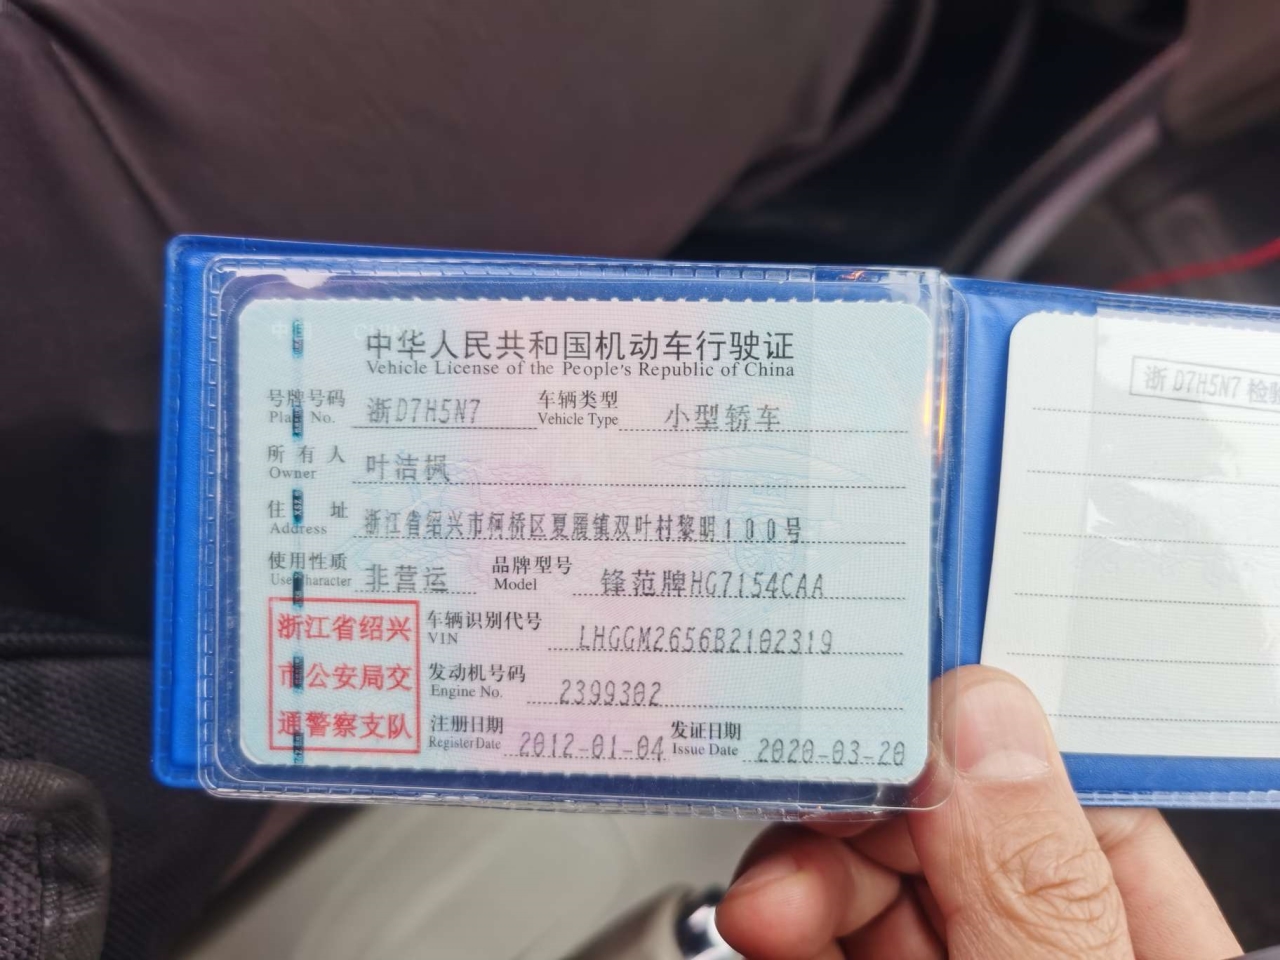 中华人民共和国机动车行驶证
Vehicle License of the People's Republic of China
号牌号码 浙D7H5N7 车辆类型 小型轿车
Plate No. Vehicle Type
所有人 叶洁枫
Owner
住址 浙江省绍兴市柯桥区夏履镇双叶村黎明100号
Address
使用性质 非营运 品牌型号 锋范牌HG7154CAA
Use Character Model
车辆识别代号 LHGGM2656B2102319
VIN
发动机号码 2399302
Engine No.
注册日期 2012-01-04 发证日期 2020-03-20
Register Date Issue Date
浙江省绍兴
市公安局交
通警察支队
浙D7H5N7 检验